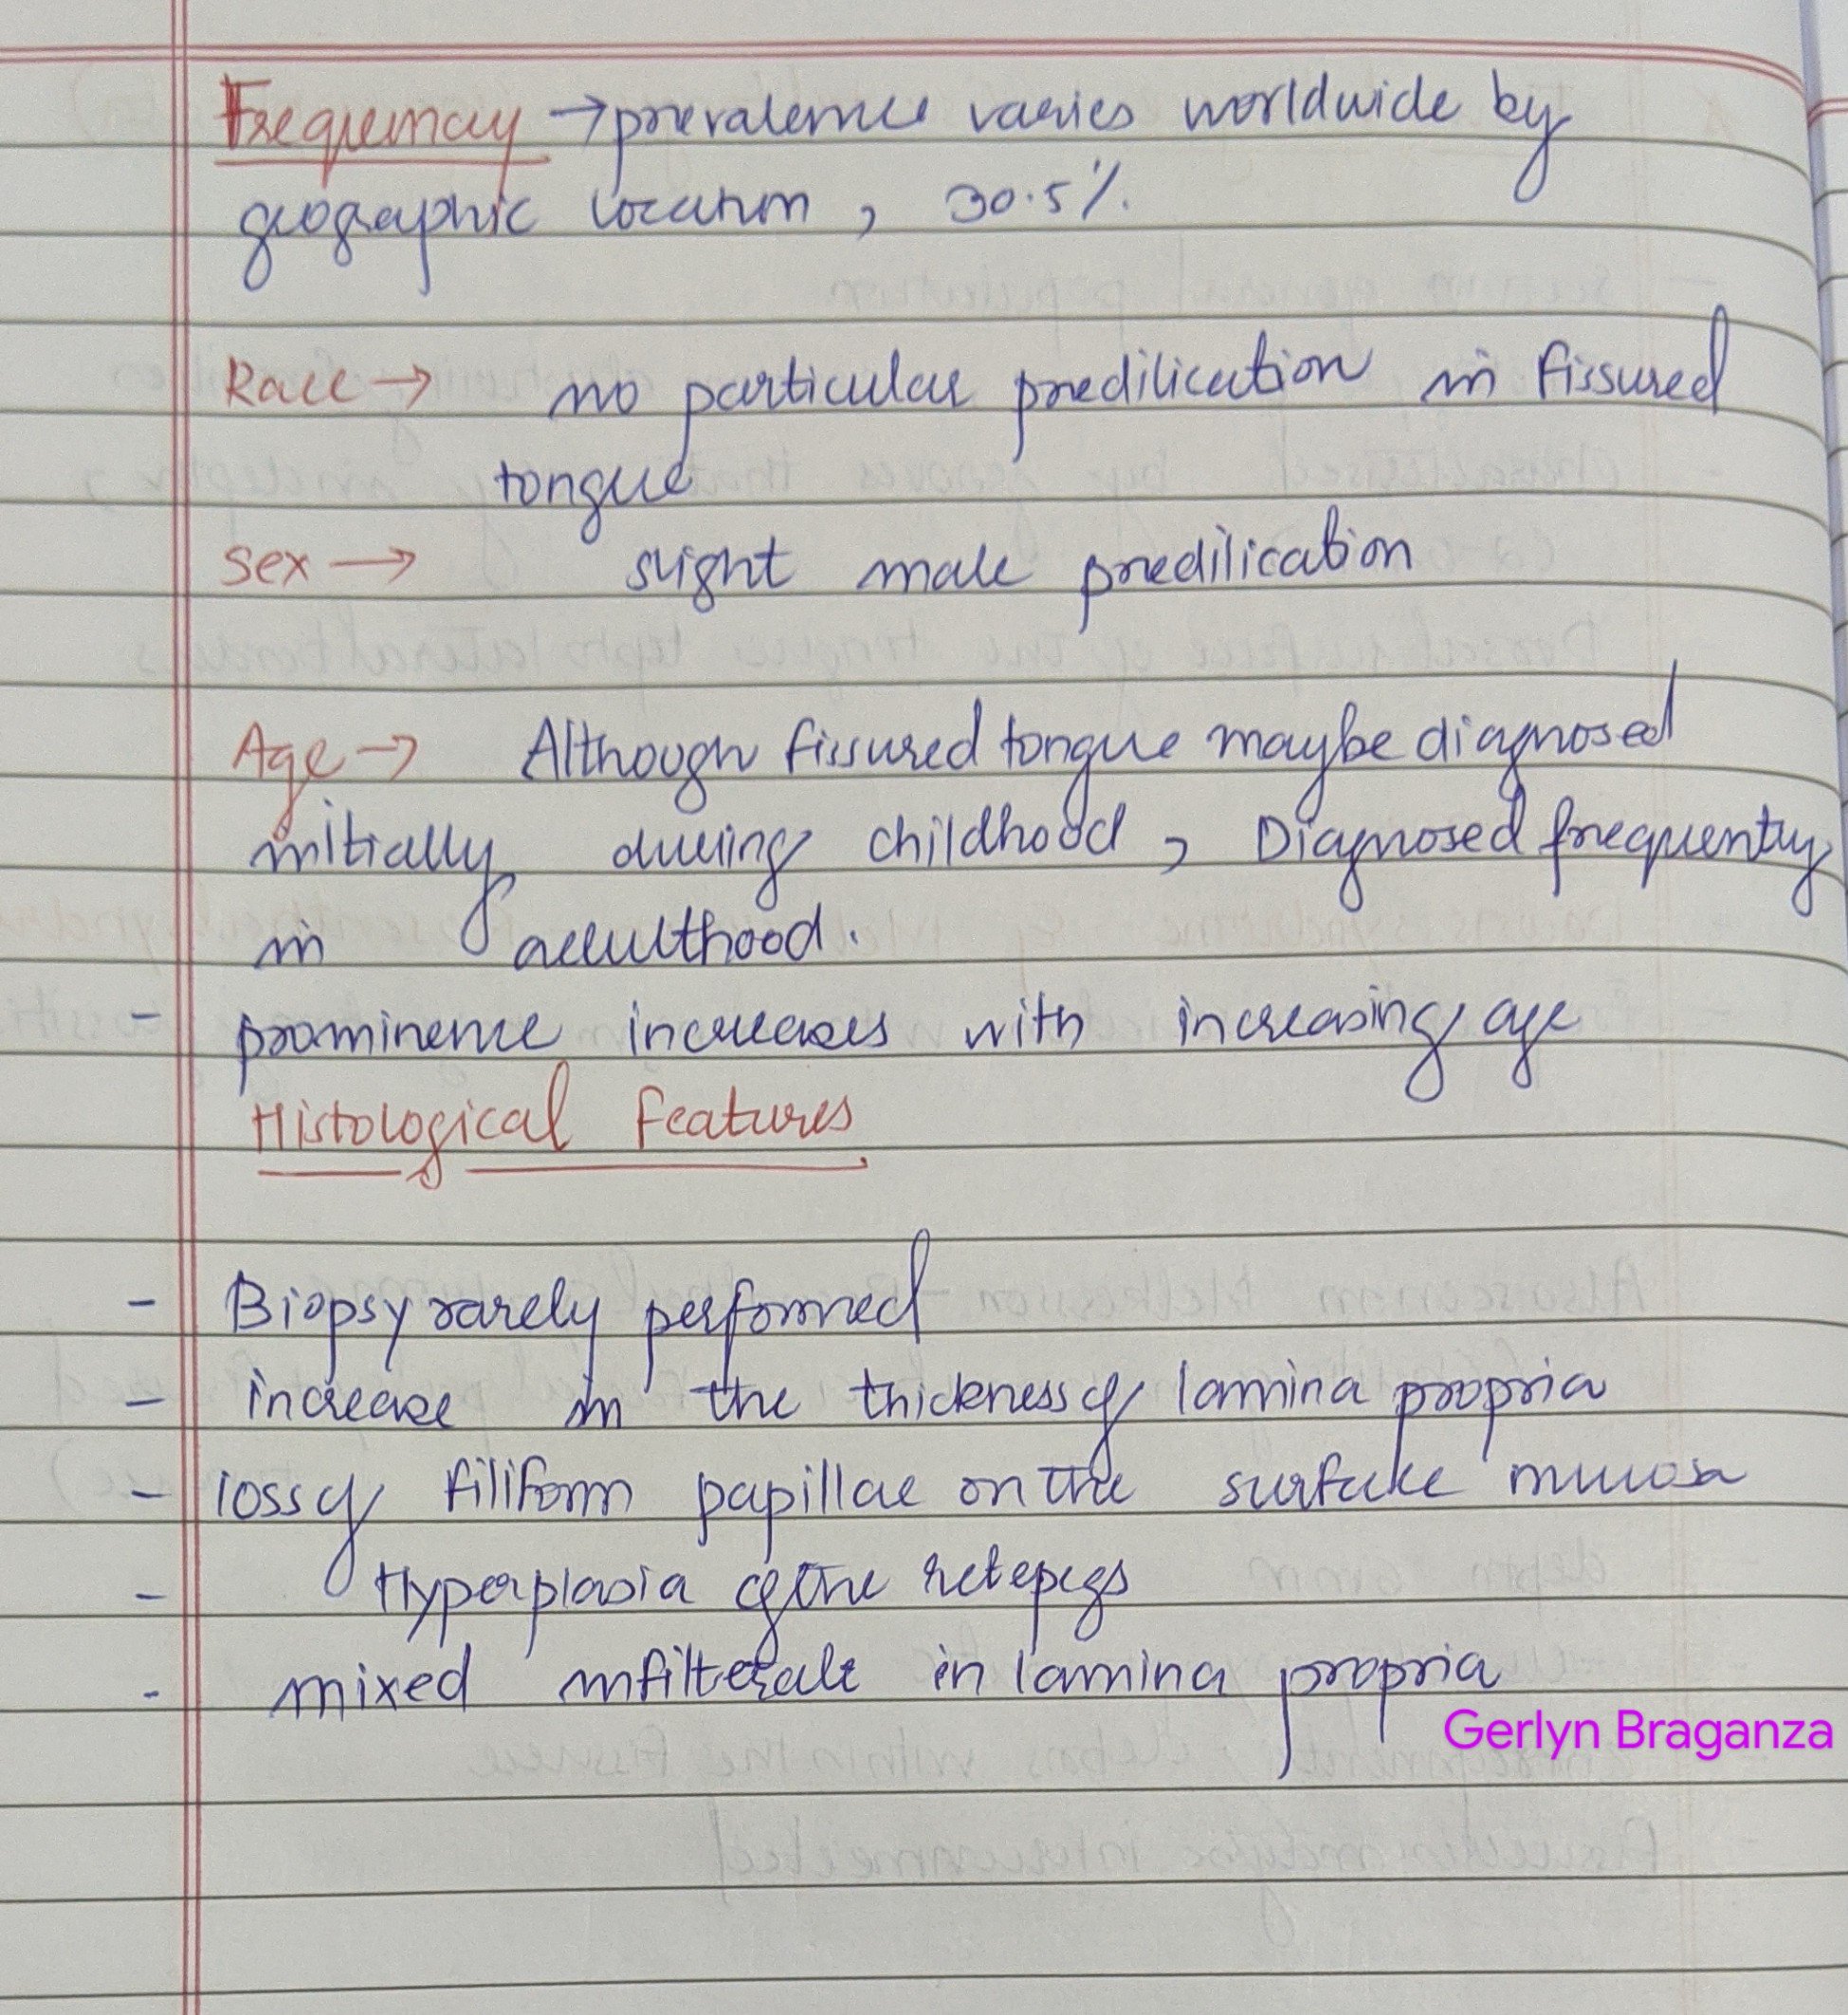 Frequency → prevalence varies worldwide by
geographic location , 30.5%.
Race → no particular predilication in fissured
tongue
Sex → slight male predilication
Age → Although fissured tongue maybe diagnosed
initially during childhood , Diagnosed frequently
in adulthood.
- prominence increases with increasing age
Histological Features
- Biopsy rarely performed
- increase in the thickness of lamina propria
- loss of filiform papillae on the surface mucosa
- Hyperplasia of the retepegs
- mixed infilterate in lamina propria
Gerlyn Braganza